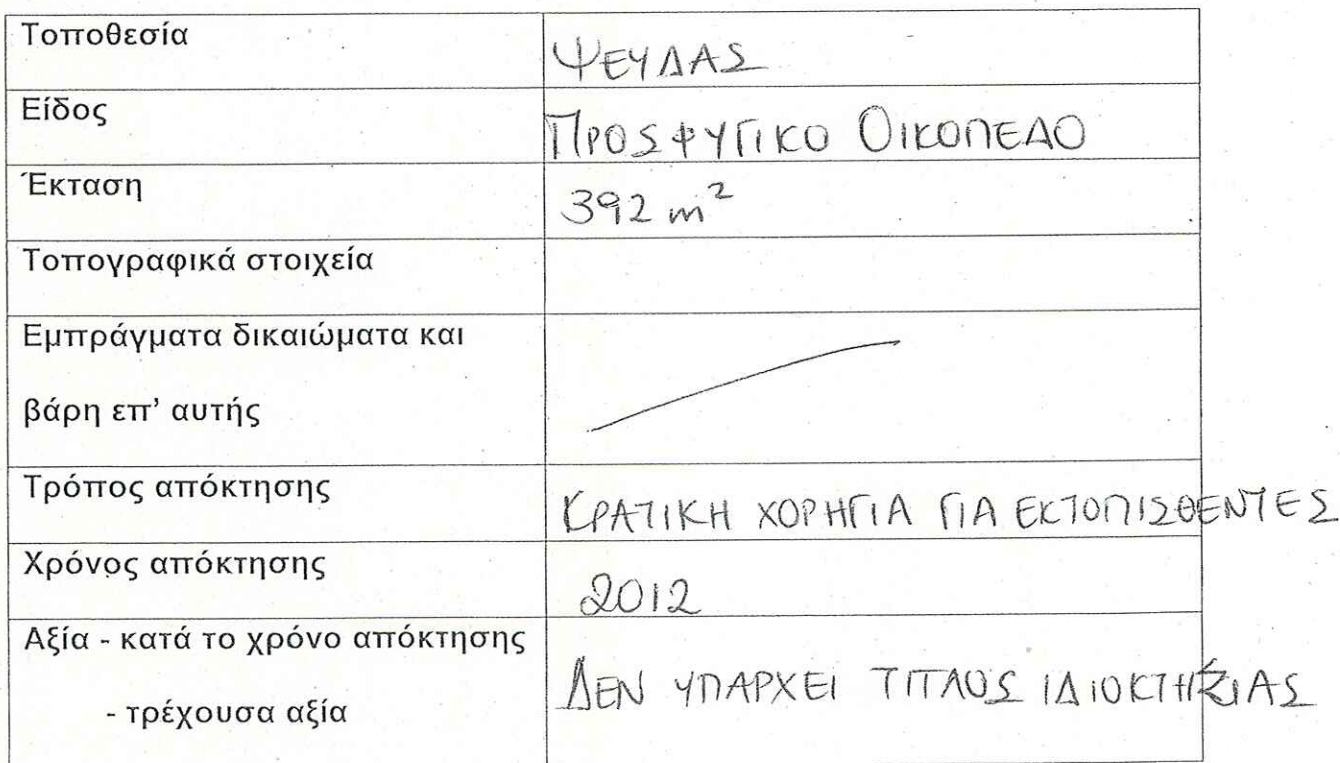 Τοποθεσία
ΨΕΥΔΑΣ
Είδος
ΠΡΟΣΦΥΓΙΚΟ ΟΙΚΟΠΕΔΟ
Έκταση
392 m²
Τοπογραφικά στοιχεία
Εμπράγματα δικαιώματα και
βάρη επ' αυτής
Τρόπος απόκτησης
ΚΡΑΤΙΚΗ ΧΟΡΗΓΙΑ ΓΙΑ ΕΚΤΟΠΙΣΘΕΝΤΕΣ
Χρόνος απόκτησης
2012
Αξία - κατά το χρόνο απόκτησης
- τρέχουσα αξία
ΔΕΝ ΥΠΑΡΧΕΙ ΤΙΤΛΟΣ ΙΔΙΟΚΤΗΣΙΑΣ